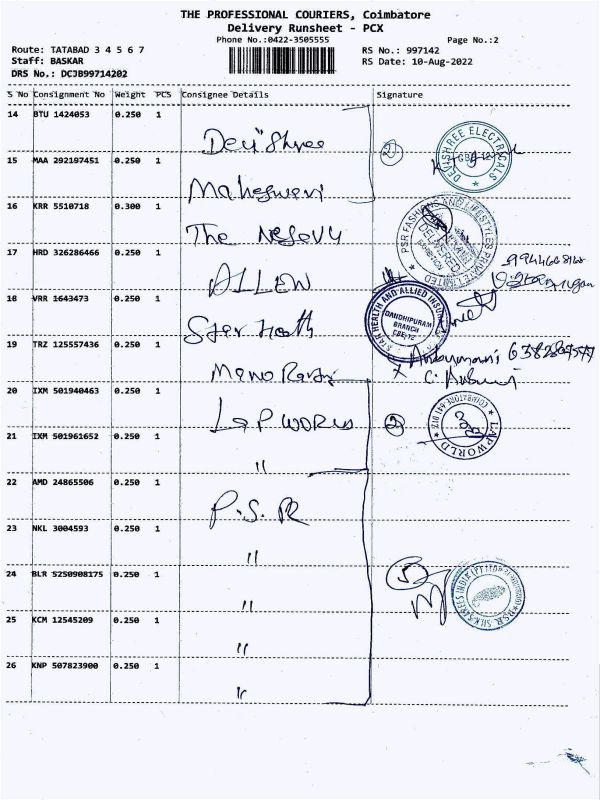 THE PROFESSIONAL COURIERS, Coimbatore
Delivery Runsheet - PCX
Phone No.:0422-3505555
Page No.:2
Route: TATABAD 3 4 5 6 7
RS No.: 997142
Staff: BASKAR
RS Date: 10-Aug-2022
DRS No.: DCJB99714202
S No Consignment No Weight PCS Consignee Details Signature
14 BTU 1424053 0.250 1
Devi Shree
2
DEVISHREE ELECTRICALS
15 MAA 292197451 0.250 1
Maheswari
16 KRR 5510718 0.300 1
The
PSR FASHIONS AND LIFESTYLES PRIVATE LIMITED
DELIVERED
17 HRD 326286466 0.250 1
ALLEN
18 VRR 1643473 0.250 1
Star Health
STAR HEALTH AND ALLIED INSU
GANDHIPURAM
BRANCH
CBE-12
19 TRZ 125557436 0.250 1
Mano
20 IXM 501940463 0.250 1
Lap WORLD
2
LAPWORLD
COIMBATORE-641 012
21 IXM 501961652 0.250 1
"
22 AMD 24865506 0.250 1
P.S.R
23 NKL 3004593 0.250 1
"
24 BLR S250908175 0.250 1
"
5
25 KCM 12545209 0.250 1
"
26 KNP 507823900 0.250 1
"